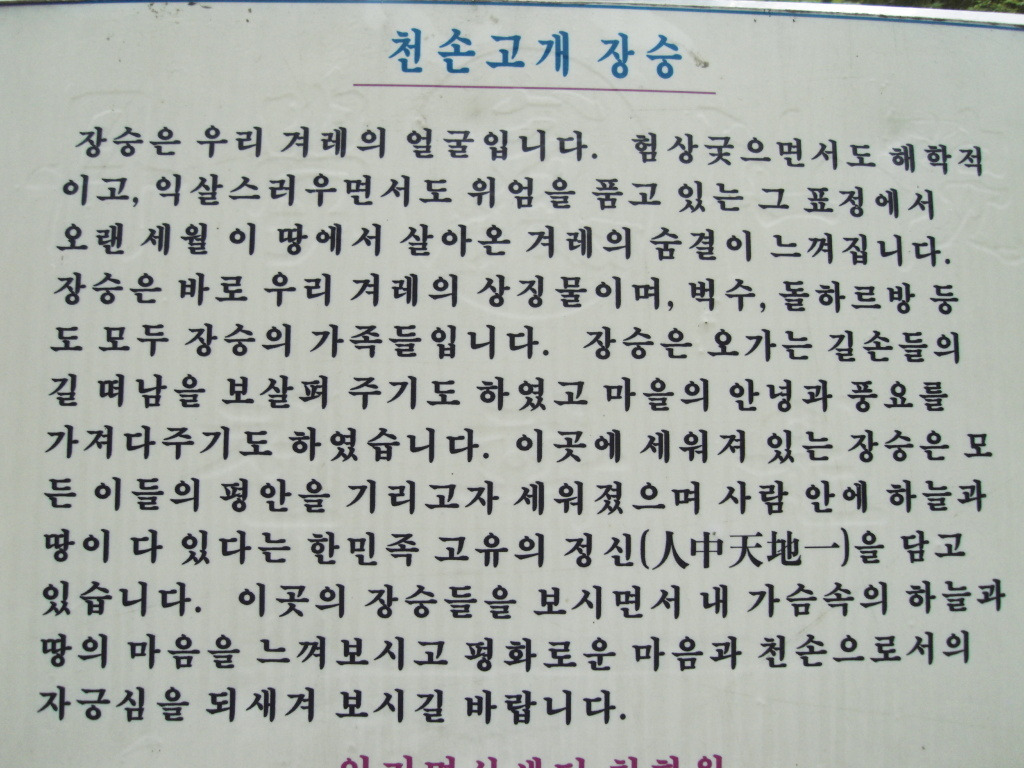 천손고개 장승
장승은 우리 겨레의 얼굴입니다. 험상궂으면서도 해학적
이고, 익살스러우면서도 위엄을 품고 있는 그 표정에서
오랜 세월 이 땅에서 살아온 겨레의 숨결이 느껴집니다.
장승은 바로 우리 겨레의 상징물이며, 벅수, 돌하르방 등
도 모두 장승의 가족들입니다. 장승은 오가는 길손들의
길 떠남을 보살펴 주기도 하였고 마을의 안녕과 풍요를
가져다주기도 하였습니다. 이곳에 세워져 있는 장승은 모
든 이들의 평안을 기리고자 세워졌으며 사람 안에 하늘과
땅이 다 있다는 한민족 고유의 정신(人中天地一)을 담고
있습니다. 이곳의 장승들을 보시면서 내 가슴속의 하늘과
땅의 마음을 느껴보시고 평화로운 마음과 천손으로서의
자긍심을 되새겨 보시길 바랍니다.